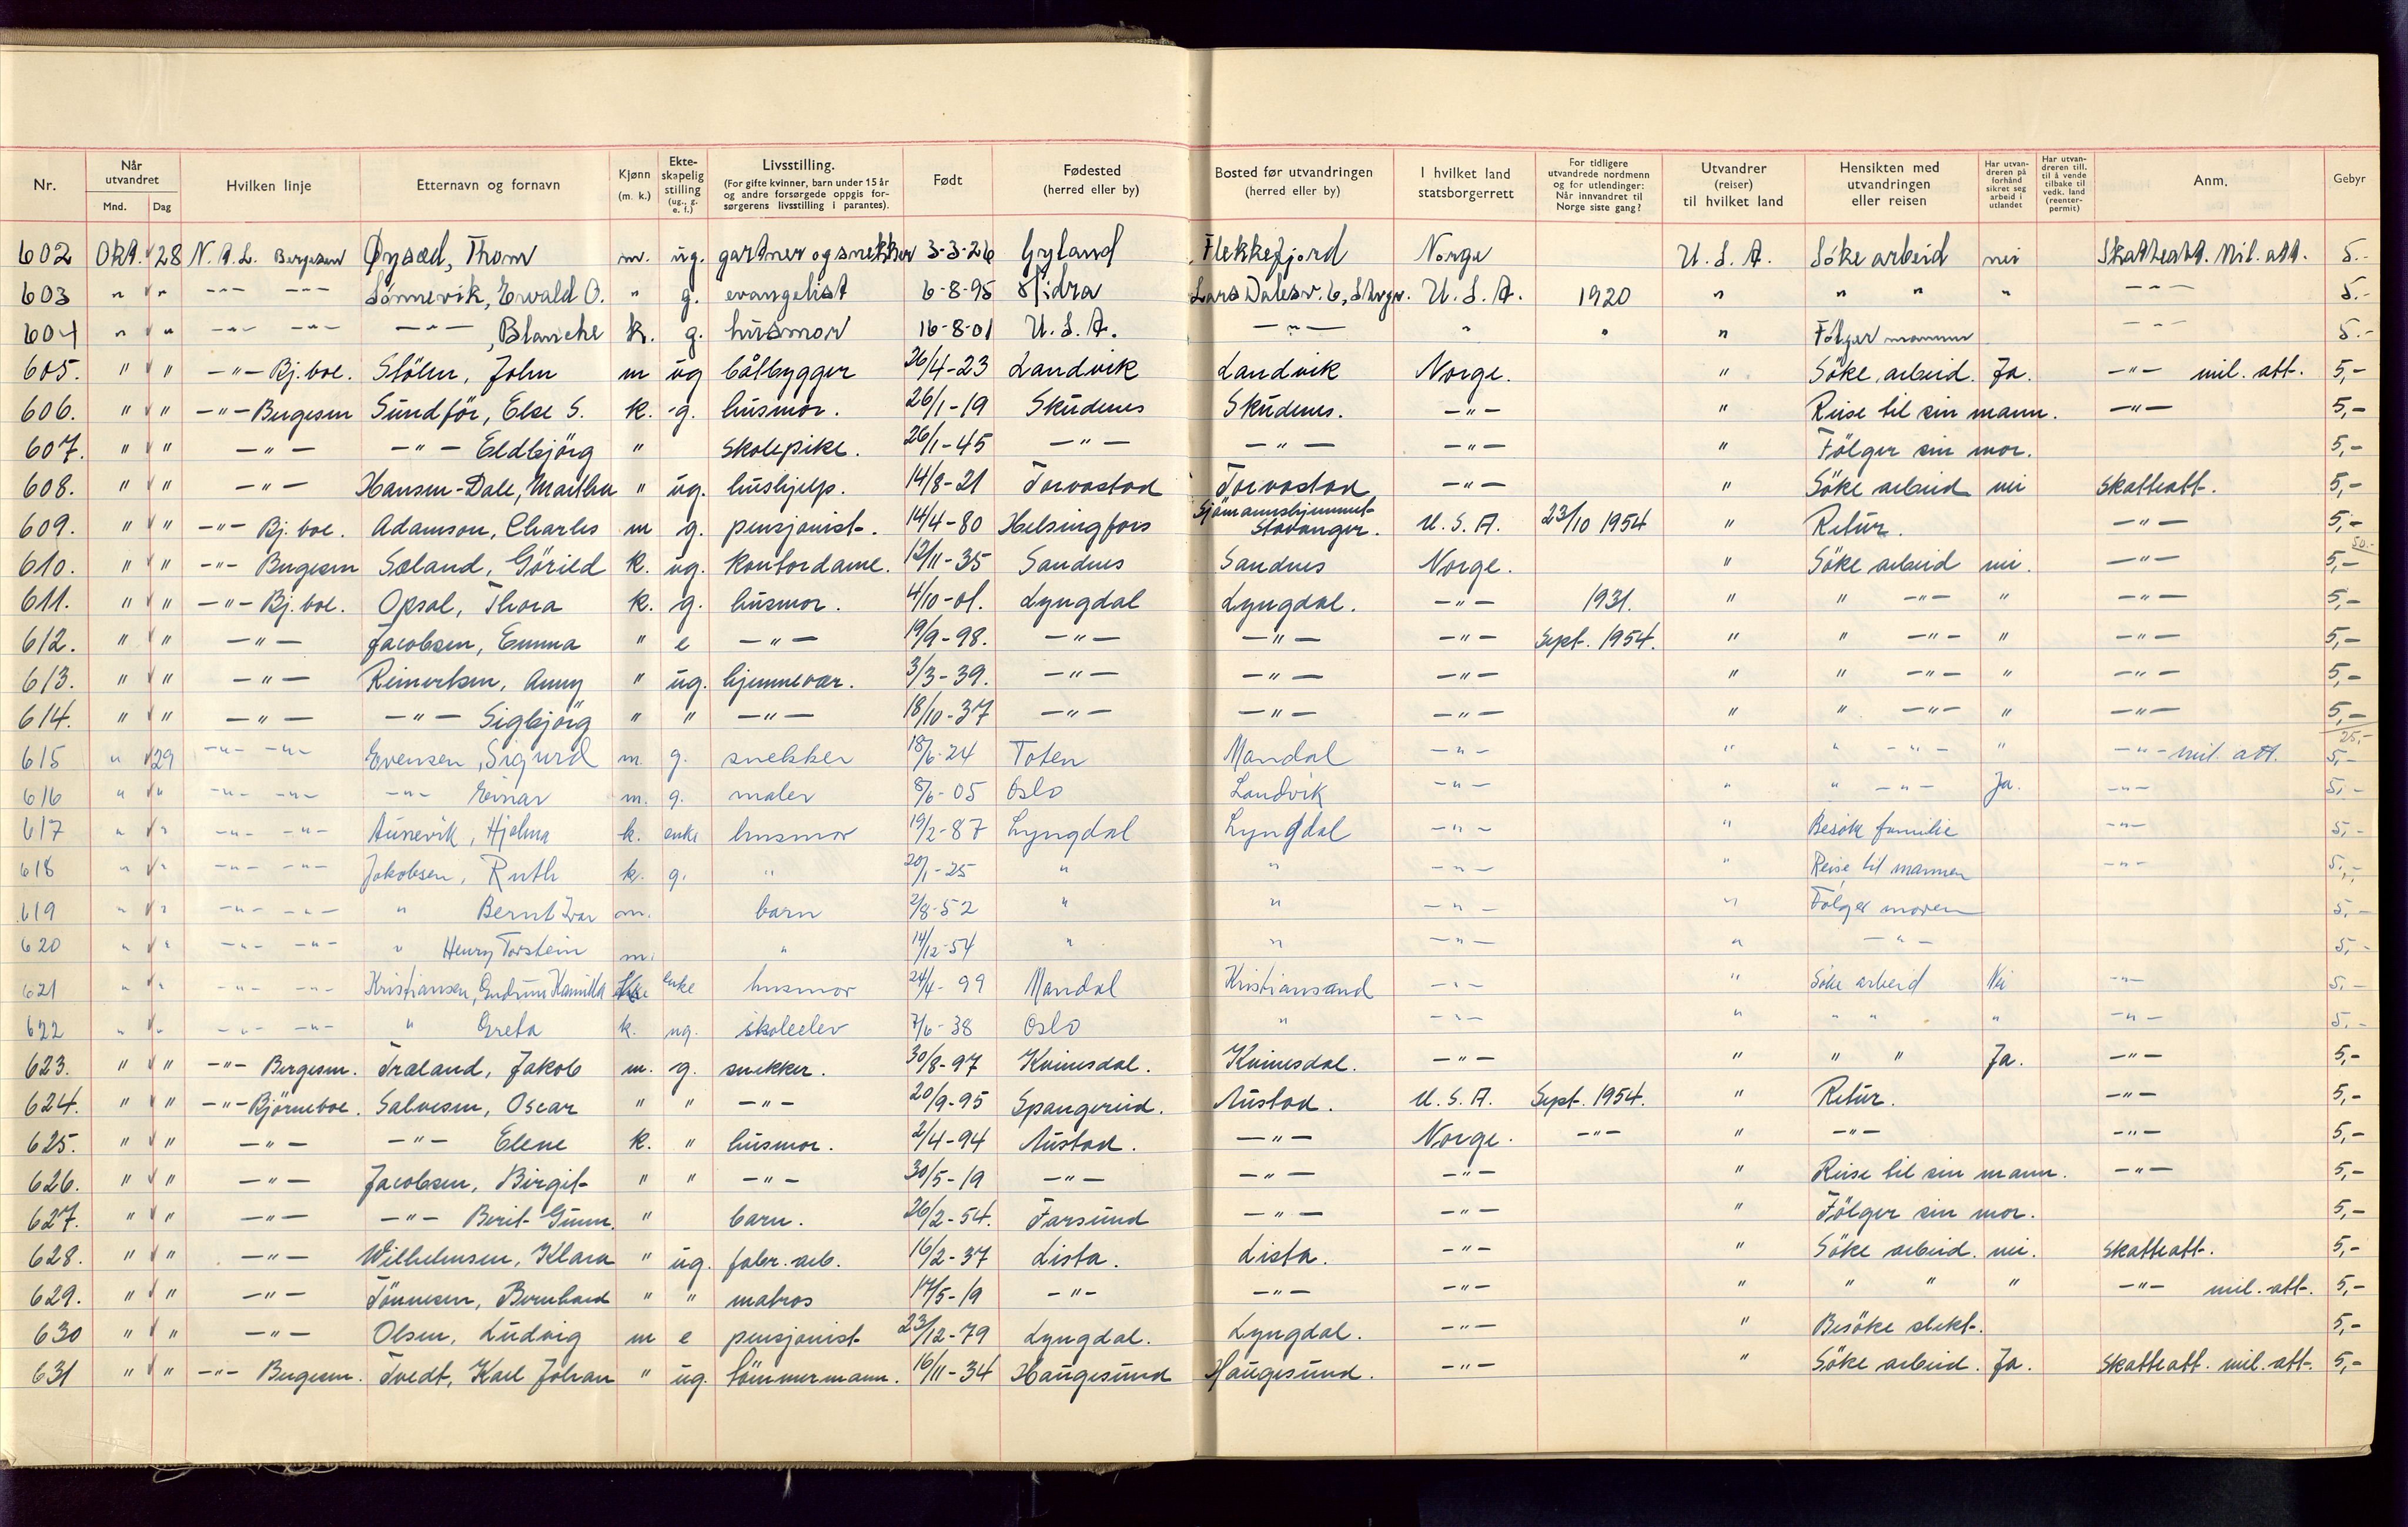 Nr. Når utvandret Mnd. Dag Hvilken linje Etternavn og fornavn Kjønn (m. k.) Ekte-skapelig stilling (ug., g. e. f.) Livsstilling. (For gifte kvinner, barn under 15 år og andre forsørgede oppgis forsørgerens livsstilling i parantes). Født Fødested (herred eller by) Bosted før utvandringen (herred eller by) I hvilket land statsborgerrett For tidligere utvandrede nordmenn og for utlendinger: Når innvandret til Norge siste gang? Utvandrer (reiser) til hvilket land Hensikten med utvandringen eller reisen Har utvandreren på forhånd sikret seg arbeid i utlandet Har utvandreren till. til å vende tilbake til vedk. land (reenter-permit) Anm. Gebyr
602 Okt. 28 N. A. L. Bergesen Øysæd, Thom m. ug. gartner og snekker 3-3-26 Gyland Flekkefjord Norge U. S. A. Söke arbeid nei Skatteatt. Mil. att. 5.-
603 " " -"- -"- Sønnevik, Ewald O. " g. evangelist 6-8-95 Hidra Lars Dalesv. 6, U. S. A. 1920 " " " " -"- 5.-
604 " " -"- -"- -"-, Blanche k. g. husmor 16-8-01 U. S. A. -"- " " " Følger mannen -"- 5.-
605. " " -"- Bj. boe. Stölen, John m ug båtbygger 26/4-23 Landvik Landvik Norge. " Söke arbeid. Ja. -"- mil. att. 5,-
606. " " -"- Bergesen Sundför, Else S. k. g. husmor. 26/1-19 Skudenes Skudenes. -"- " Reise til sin mann. -"- 5,-
607. " " -"- -"- Eldbjörg " skolepike. 26/1-45 -"- -"- -"- " Fölger sin mor. 5,-
608. " " -"- Hansen-Dale, Martha " ug. hushjelp. 14/8-21 Torvastad Torvastad -"- " Söke arbeid nei Skatteatt. 5,-
609. " " -"- Bj. boe. Adamson, Charles m g. pensjonist. 14/4-80 Helsingfors Sjömannshjemmet Stavanger. U. S. A. 23/10 1954 " Retur. -"- 5,-
50.-
610. " " -"- Bergesen Sæland, Görild k. ug. kontordame. 12/11-35 Sandnes Sandnes Norge. " Söke arbeid nei. -"- 5,-
611. " " -"- Bj. boe. Opsal, Thora k. g. husmor. 4/10-01. Lyngdal Lyngdal. -"- 1931. " " -"- " -"- 5,-
612. " " -"- Jacobsen, Emma " e -"- 19/9-98. -"- -"- -"- Sept. 1954. " " -"- " -"- 5,-
613. " " -"- Reinertsen, Anny " ug. hjemmevær. 3/3-39. -"- -"- -"- " " -"- " -"- 5,-
614. " " -"- -"- Sigbjörg " " -"- 18/10-37 -"- -"- -"- " " -"- " -"- 5,-
25,-
615 " 29 -"- -"- Evensen, Sigurd m. g. snekker 18/6-24 Toten Mandal -"- " " -"- " -"- mil. att. 5,-
616 " " -"- -"- -"- Einar m. g. maler 8/6-05 Oslo Landvik -"- " " -"- Ja. -"- 5,-
617 " " -"- -"- Aunevik, Hjalma k. enke husmor 19/2-87 Lyngdal Lyngdal -"- " Besøke familie -"- 5,-
618 " " -"- -"- Jakobsen, Ruth k. g. " 20/1-25 " " -"- " Reise til mannen -"- 5,-
619 " " -"- -"- " Bernt Ivar m. barn 2/8-52 " " -"- " Følger moren 5,-
620 " " -"- -"- " Henry Torstein m. " 14/12-54 " " -"- " -"- 5,-
621 " " -"- -"- Kristiansen, Gudrun Kamilla enke husmor 24/4-99 Mandal Kristiansand -"- " Söke arbeid Nei -"- 5,-
622 " " -"- -"- " Greta k. ug. skoleelev 7/6-38 Oslo " -"- " " " " -"- 5,-
623. " " -"- Bergesen. Træland, Jakob m. g. snekker. 30/8-97 Kvinesdal. Kvinesdal. -"- " " " Ja. -"- 5,-
624. " " -"- Björneboe. Salvesen, Oscar " " -"- 20/9-95 Spangereid. Austad. U. S. A. Sept. 1954. " Retur. -"- 5,-
625. " " -"- -"- Elene k. " husmor. 2/4-94 Austad. -"- Norge. -"- " -"- -"- 5,-
626. " " -"- Jacobsen, Birgit " " -"- 30/5-19 -"- -"- -"- " Reise til sin mann. -"- 5,-
627. " " -"- -"- Berit Gunn. " barn. 26/2-54. Farsund -"- -"- " Fölger sin mor. 5,-
628. " " -"- Wilhelmsen, Klara " ug. fabr. arb. 16/2-37 Lista. Lista. -"- " Söke arbeid. nei. Skatteatt. 5,-
629. " " -"- Tönnesen, Bernhard " " matros 17/5-19 -"- -"- -"- " " " " -"- mil. att. 5,-
630 " " -"- Olsen, Ludvig m e pensjonist 23/12-79 Lyngdal. Lyngdal. -"- " Besöke slekt. 5,-
631 " " -"- Bergesen. Tvedt, Karl Johan " ug. tömmermann. 16/11-34 Haugesund Haugesund. -"- " Söke arbeid. Ja. Skatteatt. mil. att. 5,-